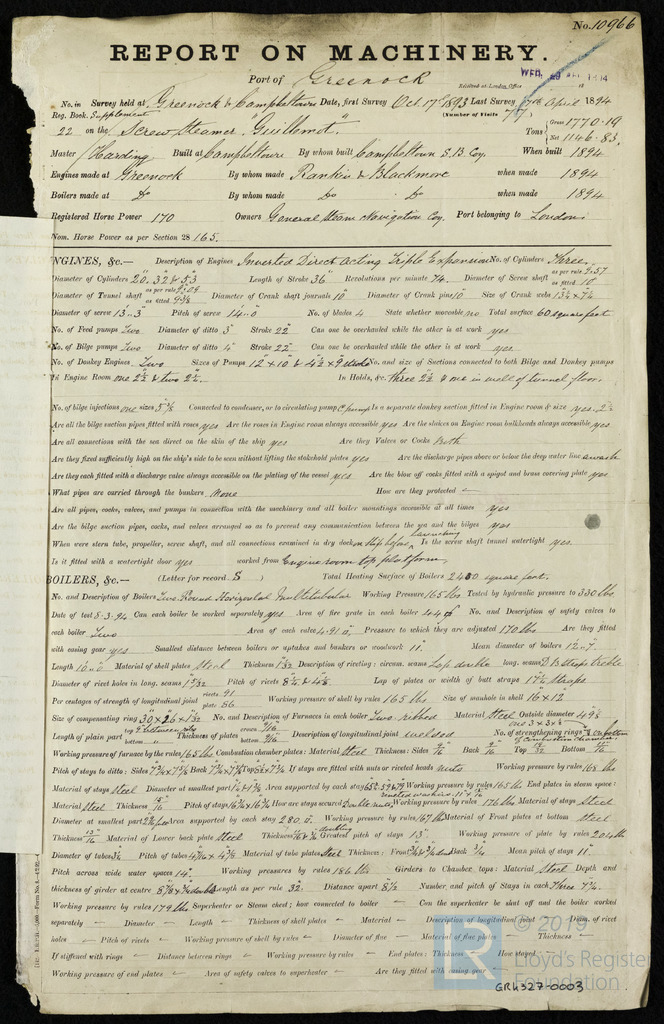 No. 10966
REPORT ON MACHINERY.
Port of Greenock
Received at London Office WED.
No. in Survey held at Greenock & Campbeltown Date, first Survey Oct 17th 1893 Last Survey April 1894
Reg. Book. Supplement (Number of Visits
22 on the Screw Steamer "Guillemot" Tons Gross 1770.19 Net 1146.83
Master Harding Built at Campbeltown By whom built Campbeltown S.B. Coy. When built 1894
Engines made at Greenock By whom made Rankin & Blackmore when made 1894
Boilers made at Do By whom made Do Do when made 1894
Registered Horse Power 170 Owners General Steam Navigation Coy. Port belonging to London
Nom. Horse Power as per Section 28 165.
NGINES, &c.— Description of Engines Inverted Direct Acting Triple Expansion No. of Cylinders Three
Diameter of Cylinders 20", 32" & 53 Length of Stroke 36" Revolutions per minute 74. Diameter of Screw shaft as per rule 9.57 as fitted 10"
Diameter of Tunnel shaft as per rule 9.09 as fitted 9 3/8 Diameter of Crank shaft journals 10" Diameter of Crank pins 10" Size of Crank webs
Diameter of screw 13..3" Pitch of screw 14..0 No. of blades 4 State whether moveable no Total surface 60 square feet
No. of Feed pumps Two Diameter of ditto 3" Stroke 22" Can one be overhauled while the other is at work yes
No. of Bilge pumps Two Diameter of ditto 4" Stroke 22" Can one be overhauled while the other is at work yes
No. of Donkey Engines Two Sizes of Pumps 12" x 10" & 4 1/2 x 9 No. and size of Suctions connected to both Bilge and Donkey pumps
In Engine Room one 2 3/4 & two 2 1/2 In Holds, &c. three 2 1/2 & one in well of tunnel floor.
No. of bilge injections one sizes 5 3/4 Connected to condenser, or to circulating pump C pump Is a separate donkey suction fitted in Engine room & size yes
Are all the bilge suction pipes fitted with roses yes Are the roses in Engine room always accessible yes Are the sluices on Engine room bulkheads always accessible yes
Are all connections with the sea direct on the skin of the ship yes Are they Valves or Cocks Both
Are they fixed sufficiently high on the ship's side to be seen without lifting the stokehold plates yes Are the discharge pipes above or below the deep water line awash
Are they each fitted with a discharge valve always accessible on the plating of the vessel yes Are the blow off cocks fitted with a spigot and brass covering plate yes
What pipes are carried through the bunkers None How are they protected —
Are all pipes, cocks, valves, and pumps in connection with the machinery and all boiler mountings accessible at all times yes
Are the bilge suction pipes, cocks, and valves arranged so as to prevent any communication between the sea and the bilges yes
When were stern tube, propeller, screw shaft, and all connections examined in dry dock on ship before launching Is the screw shaft tunnel watertight yes
Is it fitted with a watertight door yes worked from Engine room top platform
BOILERS, &c.— (Letter for record S) Total Heating Surface of Boilers 2400 square feet.
No. and Description of Boilers Two Round Horizontal Multitubular Working Pressure 165 lbs Tested by hydraulic pressure to 330 lbs
Date of test 8.3.94 Can each boiler be worked separately yes Area of fire grate in each boiler 44 No. and Description of safety valves to
each boiler Two Area of each valve 4.91 Pressure to which they are adjusted 170 lbs Are they fitted
with easing gear yes Smallest distance between boilers or uptakes and bunkers or woodwork 11" Mean diameter of boilers 12..7"
Length 10..0 Material of shell plates Steel Thickness Description of riveting: circum. seams Lap double long. seams D.B. Straps treble
Diameter of rivet holes in long. seams Pitch of rivets Lap of plates or width of butt straps straps
Per centages of strength of longitudinal joint rivets 91 plate 86 Working pressure of shell by rules 165 lbs Size of manhole in shell 16" x 12"
Size of compensating ring No. and Description of Furnaces in each boiler Two ribbed Material Steel Outside diameter
Length of plain part top bottom Thickness of plates crown 9/16 bottom 9/16 Description of longitudinal joint welded No. of strengthening rings
Working pressure of furnace by the rules 165 lbs Combustion chamber plates: Material Steel Thickness: Sides 9/16 Back 9/16 Top Bottom
Pitch of stays to ditto: Sides Back Top If stays are fitted with nuts or riveted heads nuts Working pressure by rules 168 lbs
Material of stays Steel Diameter at smallest part Area supported by each stay Working pressure by rules 165 lb End plates in steam space:
Material Steel Thickness Pitch of stays How are stays secured Double nuts, Working pressure by rules 176 lbs Material of stays Steel
Diameter at smallest part Area supported by each stay 280 Working pressure by rules 167 lb Material of Front plates at bottom steel
Thickness 13/16 Material of Lower back plate Steel Thickness Greatest pitch of stays 13" Working pressure of plate by rules 204 lb
Diameter of tubes 3 1/4 Pitch of tubes Material of tube plates Steel Thickness: Front Back 3/4 Mean pitch of stays 11"
Pitch across wide water spaces 14" Working pressures by rules 186 lbs Girders to Chamber tops: Material Steel Depth and
thickness of girder at centre Length as per rule 32 Distance apart 8 1/2 Number and pitch of Stays in each Three 7 3/4.
Working pressure by rules 179 lbs Superheater or Steam chest; how connected to boiler — Can the superheater be shut off and the boiler worked
separately — Diameter — Length — Thickness of shell plates — Material — Description of longitudinal joint — Diam. of rivet
holes — Pitch of rivets — Working pressure of shell by rules — Diameter of flue — Material of flue plates — Thickness —
If stiffened with rings — Distance between rings — Working pressure by rules — End plates: Thickness — How stayed —
Working pressure of end plates — Area of safety valves to superheater — Are they fitted with easing gear —
© 2019
Lloyd's Register
Foundation
GRK327-0003